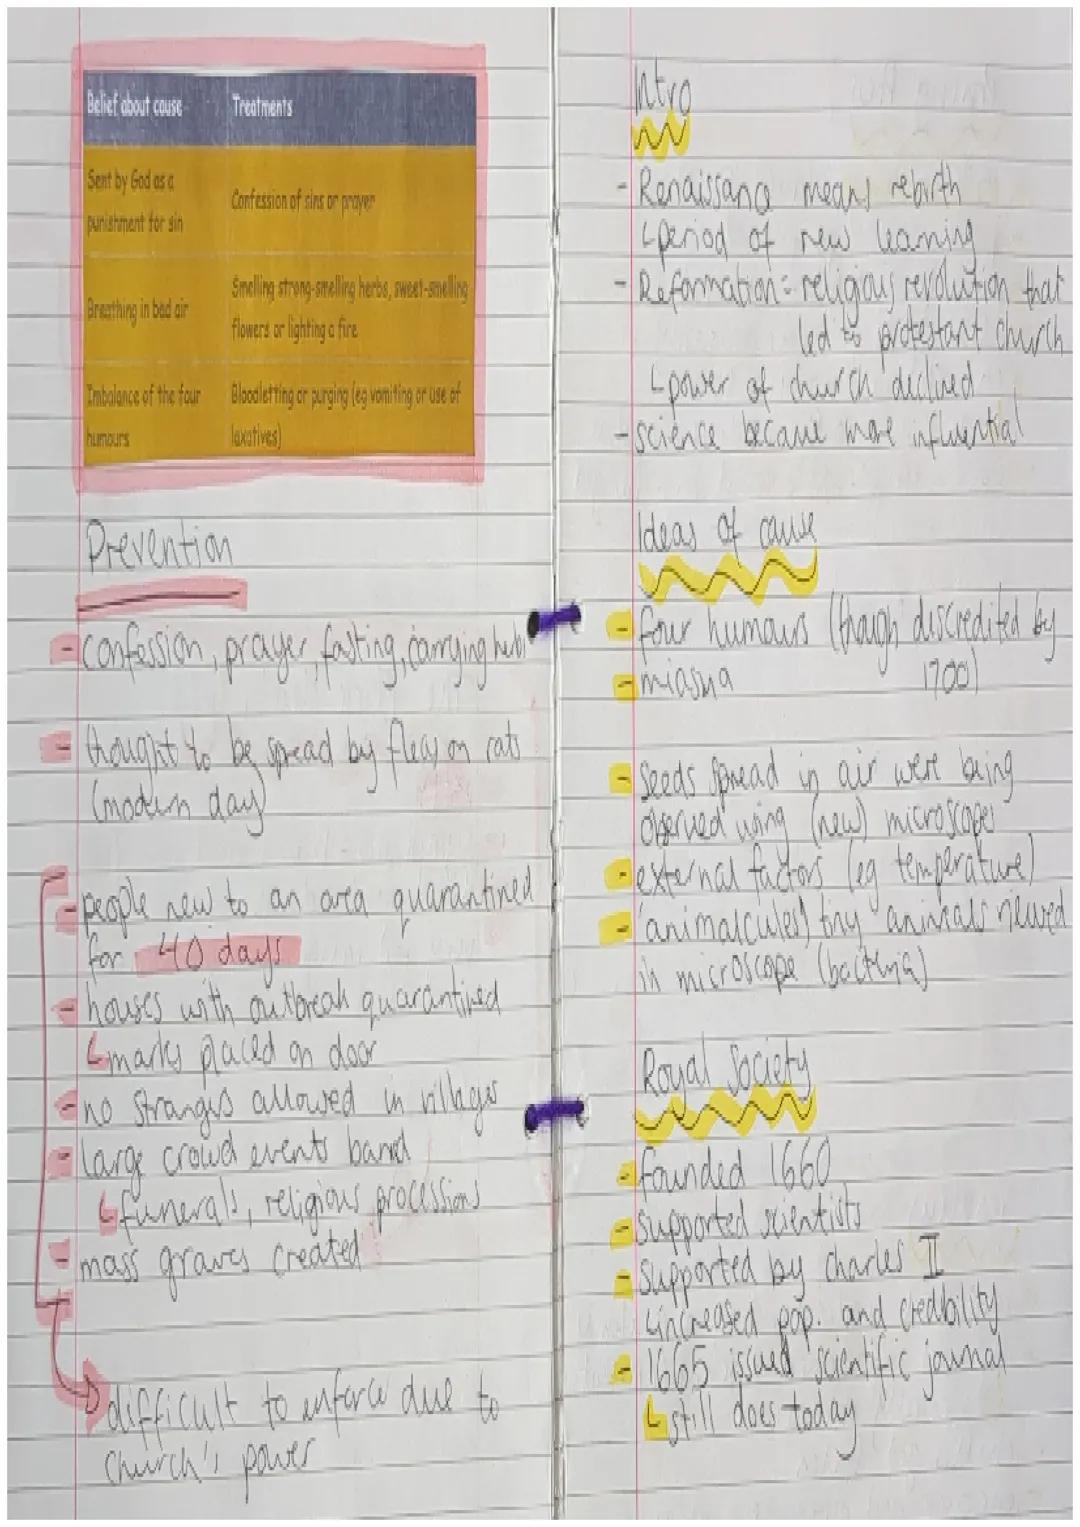 Belief about cause
Treatments
Sent by God as a
punishment for sin
Confession of sins or prayer
Breathing in bad air
Smelling strong-smelling herbs, sweet-smelling
flowers or lighting a fire
Imbalance of the four
humours
Bloodletting or purging (eg vomiting or use of
laxatives)
Prevention
- confession, prayer, fasting, carrying herbs
- thought to be spread by fleas on rats
(modern day)
- people new to an area quarantined
for 40 days
- houses with outbreak quarantined
↳ marks placed on door
- no strangrs allowed in villages
- large crowd events band
↳ funerals, religious processions
- mass graves created
difficult to enforce due to
church's power
Intro
- Renaissance means rebirth
↳ period of new learning
- Reformation = religious revolution that
led to protestant church
↳ power of church declined
- science became more influential
Ideas of cause
- four humours (though discredited by
1700)
- miasma
- seeds spread in air were being
observed using (new) microscopes
- external factors (eg temperature)
- (animalcules) tiny animals viewed
in microscope (bacteria)
Royal Society
- founded 1660
- supported scientists
- supported by charles II
↳ increased pop. and credbility
- 1665 issued scientific journal
↳ still does today